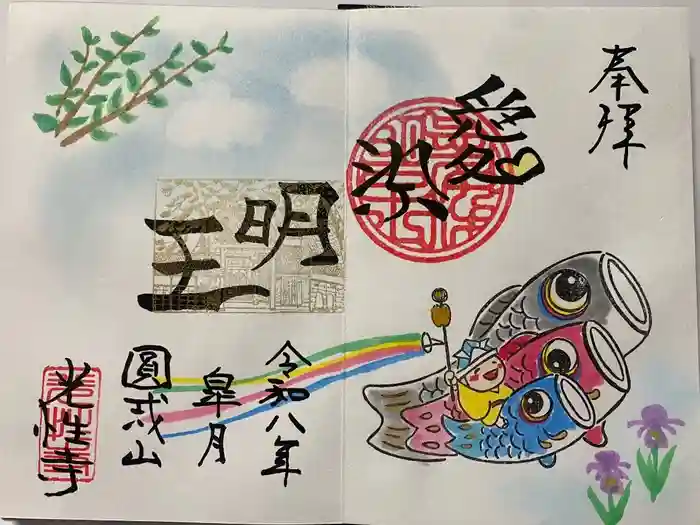 奉拝
愛染
明王
令和八年
皐月
圓戒山
光性寺